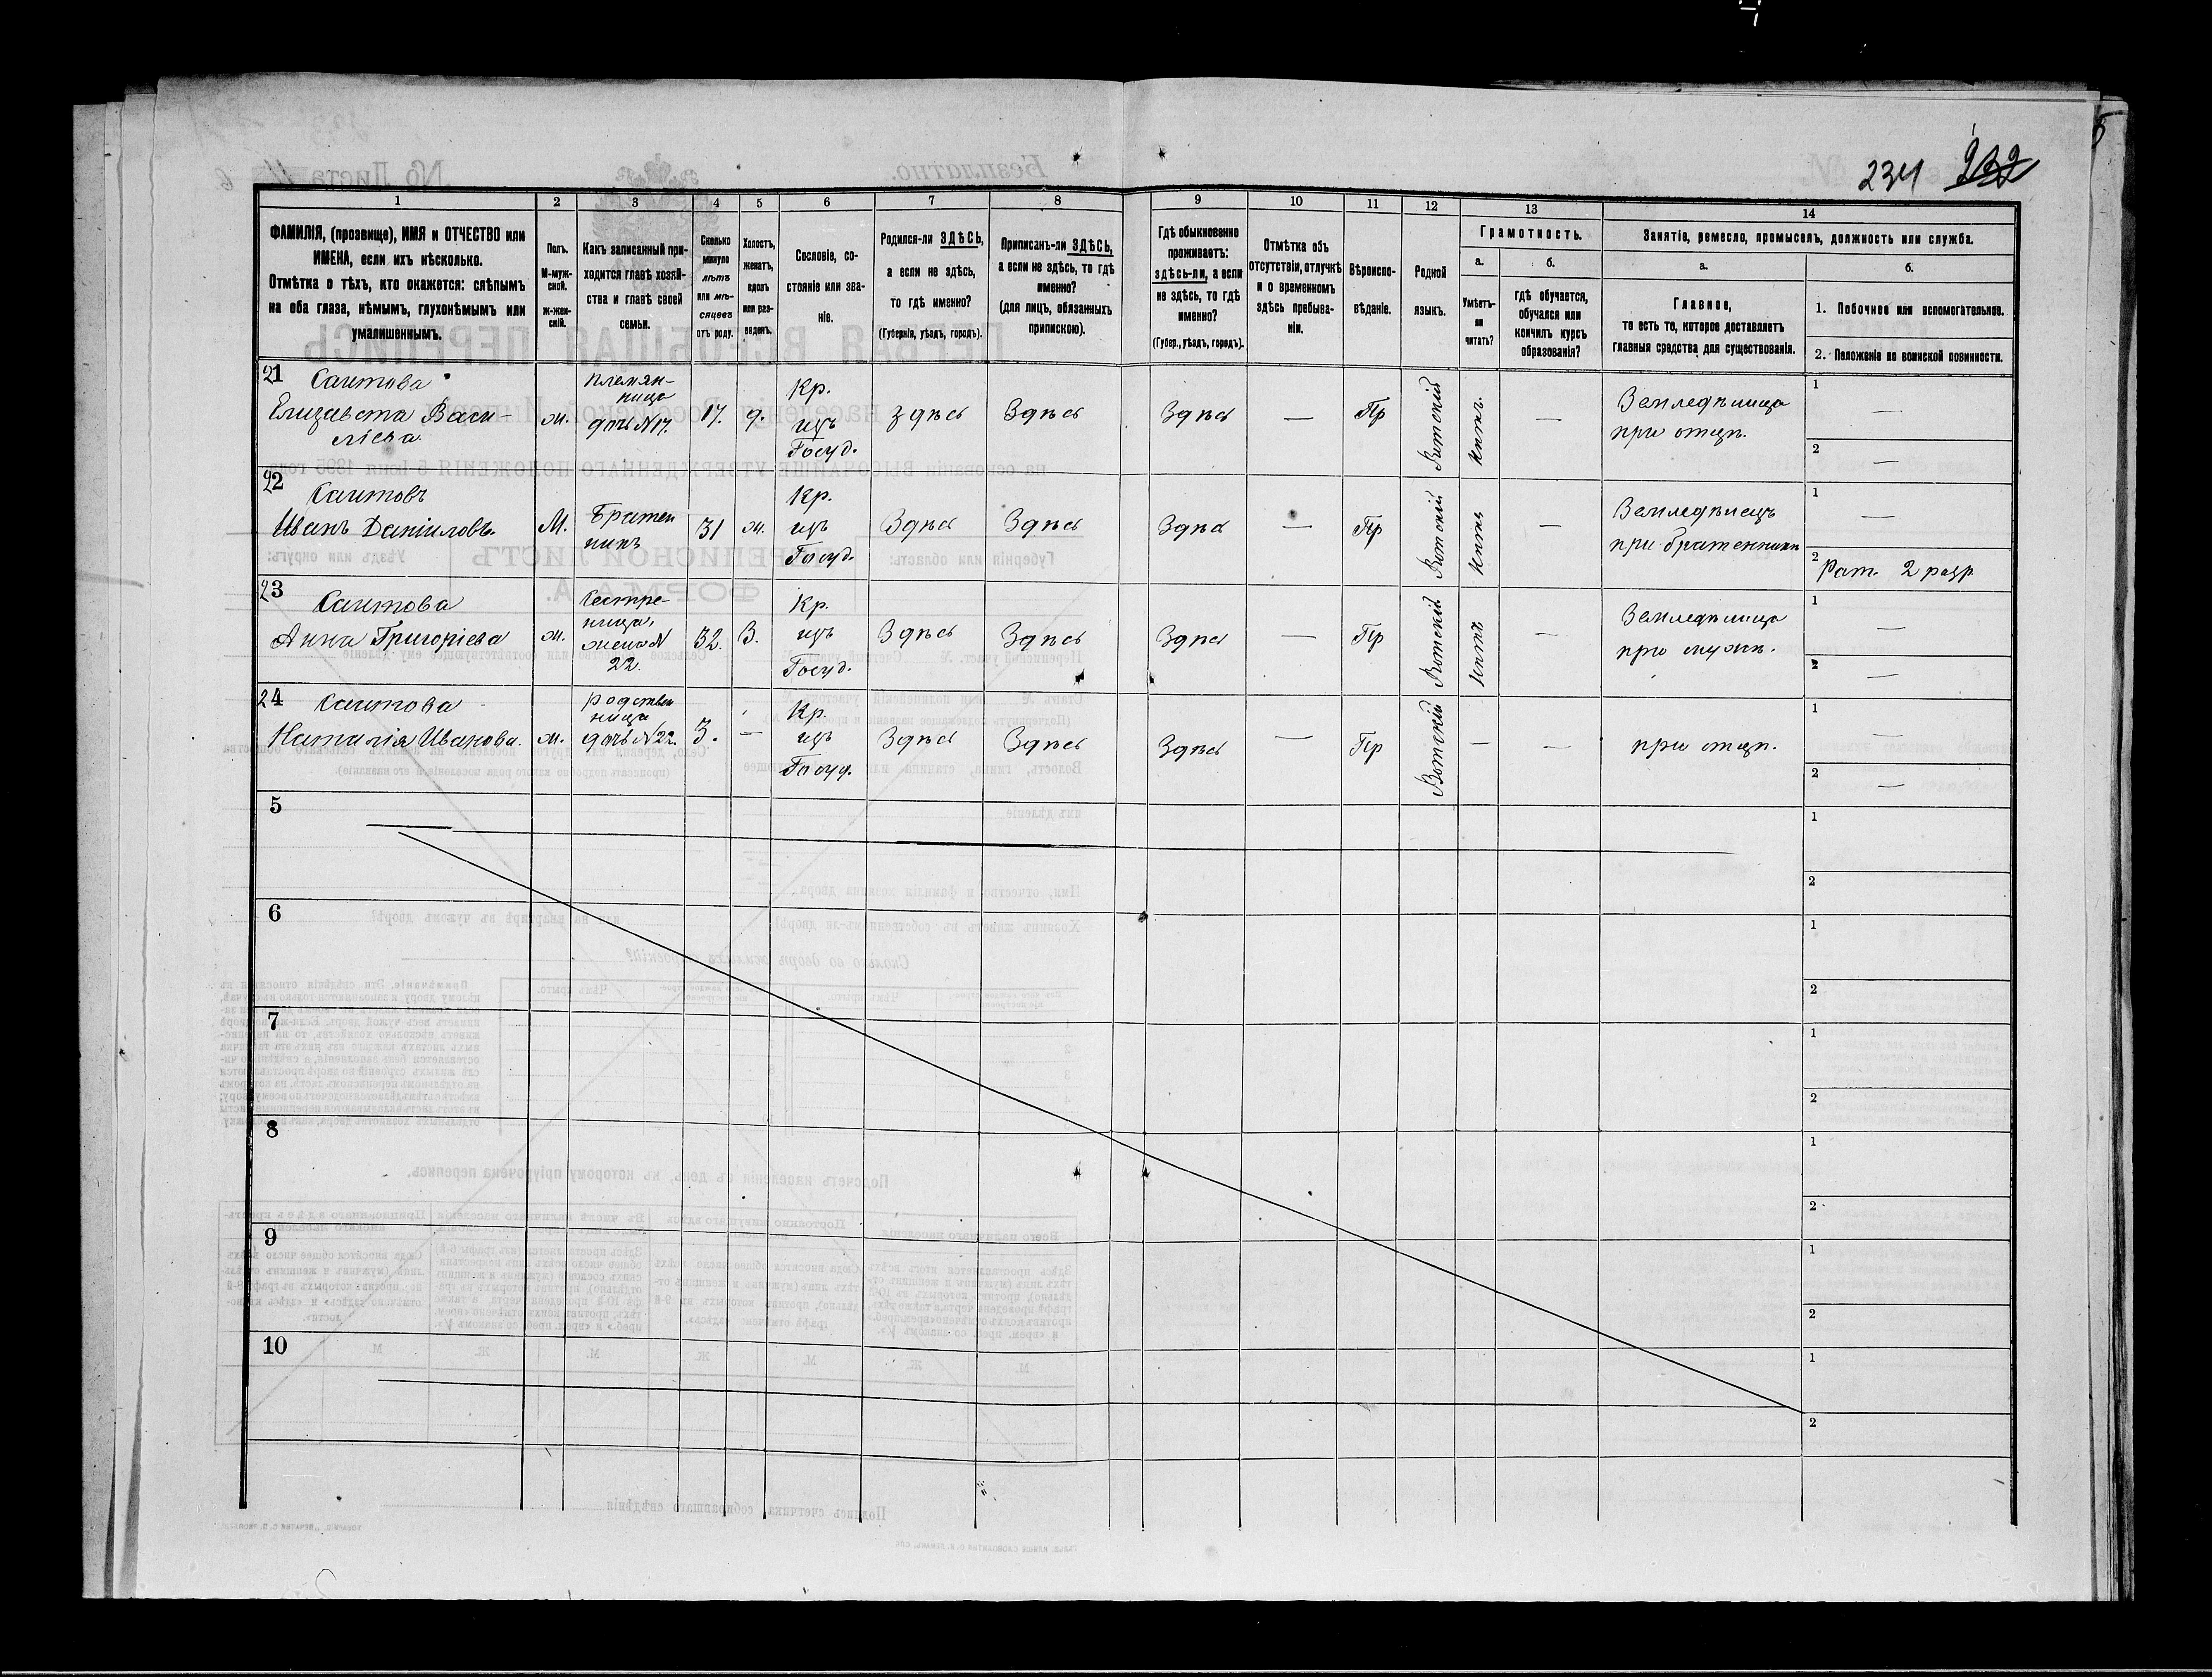 234 232
1 2 3 4 5 6 7 8 9 10 11 12 13 14
ФАМИЛІЯ, (прозвище), ИМЯ и ОТЧЕСТВО или
ИМЕНА, если ихъ нѣсколько.
Отмѣтка о тѣхъ, кто окажется: слѣпымъ
на оба глаза, нѣмымъ, глухонѣмымъ или
умалишеннымъ.
Полъ.
М-муж-
ской.
Ж-жен-
скій.
Какъ записанный при-
ходится главѣ хозяй-
ства и главѣ своей
семьи.
Сколько
минуло
лѣтъ
или мѣ-
сяцевъ
отъ роду.
Холостъ,
женатъ,
вдовъ
или раз-
веденъ.
Сословіе, со-
стояніе или зва-
ніе.
Родился-ли ЗДѢСЬ,
а если не здѣсь,
то гдѣ именно?
(Губернія, уѣздъ, городъ).
Приписанъ-ли ЗДѢСЬ,
а если не здѣсь, то гдѣ
именно?
(для лицъ, обязанныхъ
припискою).
Гдѣ обыкновенно
проживаетъ:
здѣсь-ли, а если
не здѣсь, то гдѣ
именно?
(Губер., уѣздъ, городъ).
Отмѣтка объ
отсутствіи, отлучкѣ
и о временномъ
здѣсь пребыва-
ніи.
Вѣроиспо-
вѣданіе.
Родной
языкъ.
Грамотность.
а.
Умѣетъ-
ли
читать?
б.
гдѣ обучается,
обучался или
кончилъ курсъ
образованія?
Занятіе, ремесло, промыселъ, должность или служба.
а.
Главное,
то есть то, которое доставляетъ
главныя средства для существованія.
б.
1. Побочное или вспомогательное.
2. Положеніе по воинской повинности.
21 Саитова
Елизавета Васи-
льева
ж.
племян-
ница
дочь N17.
17.
д.
Кр.
изъ
Госуд.
здѣсь
Здѣсь
Здѣсь
—
Пр
Вотскій
нѣтъ.
—
Земледѣлица
при отцѣ.
1 —
2 —
22 Саитовъ
Иванъ Даніиловъ.
М.
Братен
никъ
31
ж.
Кр.
изъ
Госуд.
Здѣсь
Здѣсь
Здѣсь
—
Пр
Вотскій
нѣтъ
—
Земледѣлецъ
при братенникѣ
1 —
2 Рат. 2 разр
23 Саитова
Анна Григоріева
ж.
Сестре-
ница,
жена N
22.
32.
З.
Кр.
изъ
Госуд.
Здѣсь
Здѣсь
Здѣсь
—
Пр
Вотскій
нѣтъ
—
Земледѣлица
при мужѣ.
1 —
2 —
24 Саитова
Наталія Иванова.
ж.
родствен
ница
дочь N22.
3.
—
Кр.
изъ
Госуд.
Здѣсь
Здѣсь
Здѣсь
—
Пр
Вотскій
—
—
при отцѣ.
1 —
2 —
5
1
2
6
1
2
7
1
2
8
1
2
9
1
2
10
1
2